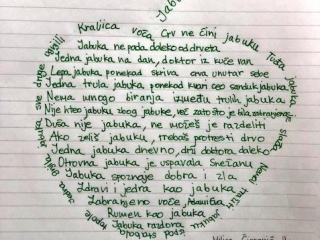 Jabu
Kraljica voća Crv ne čini jabuku
Jabuka ne pada daleko od drveta
Jedna jabuka na dan, doktor iz kuće van
Lepa jabuka ponekad skriva crva unutar sebe
Jedna trula jabuka ponekad kvari ceo sanduk jabuka
Nema mnogo biranja između trulih jabuka
Nije hteo jabuku zbog jabuke, već zato što je bila zabranjena
Duša nije jabuka, ne možeš je razdeliti
Ako želiš jabuku, trebaš protresti drvo
Jedna jabuka dnevno, drži doktora daleko
Otrovna jabuka je uspavala Snežanu
Jabuka spoznaje dobra i zla
Zdravi i jedra kao jabuka
Zabranjeno voće, Adamova
Rumen kao jabuka
Jabuka razdora
jabuka
sve druge
gnjila jabuka
ispod stabla